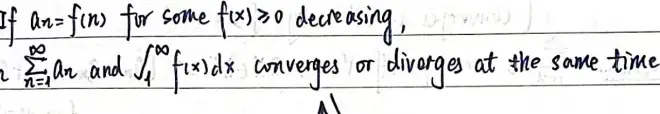 If an=f(n) for some f(x)≥0 decreasing,
∑_{n=1}^{∞} an and ∫_1^∞ f(x)dx converges or divarges at the same time